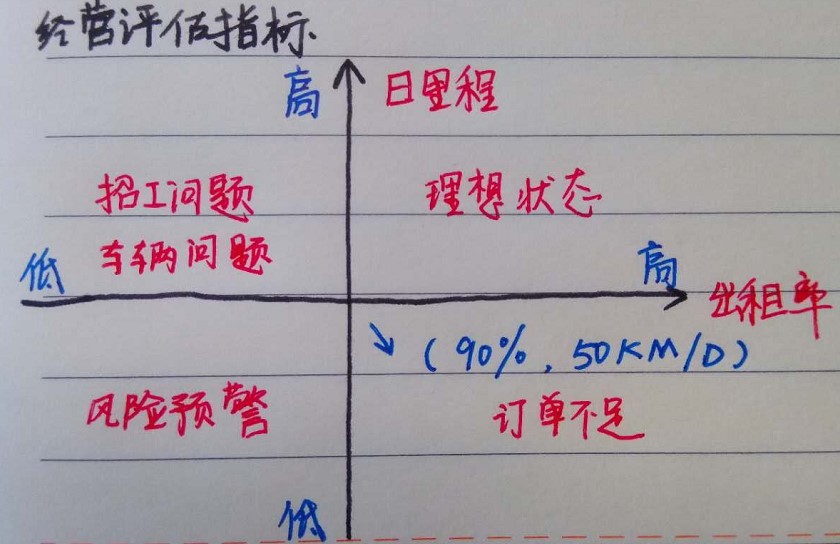 经营评估指标
高 日里程
招工问题 理想状态
车辆问题
低 高 出租率
(90%, 50KM/D)
风险预警 订单不足
低